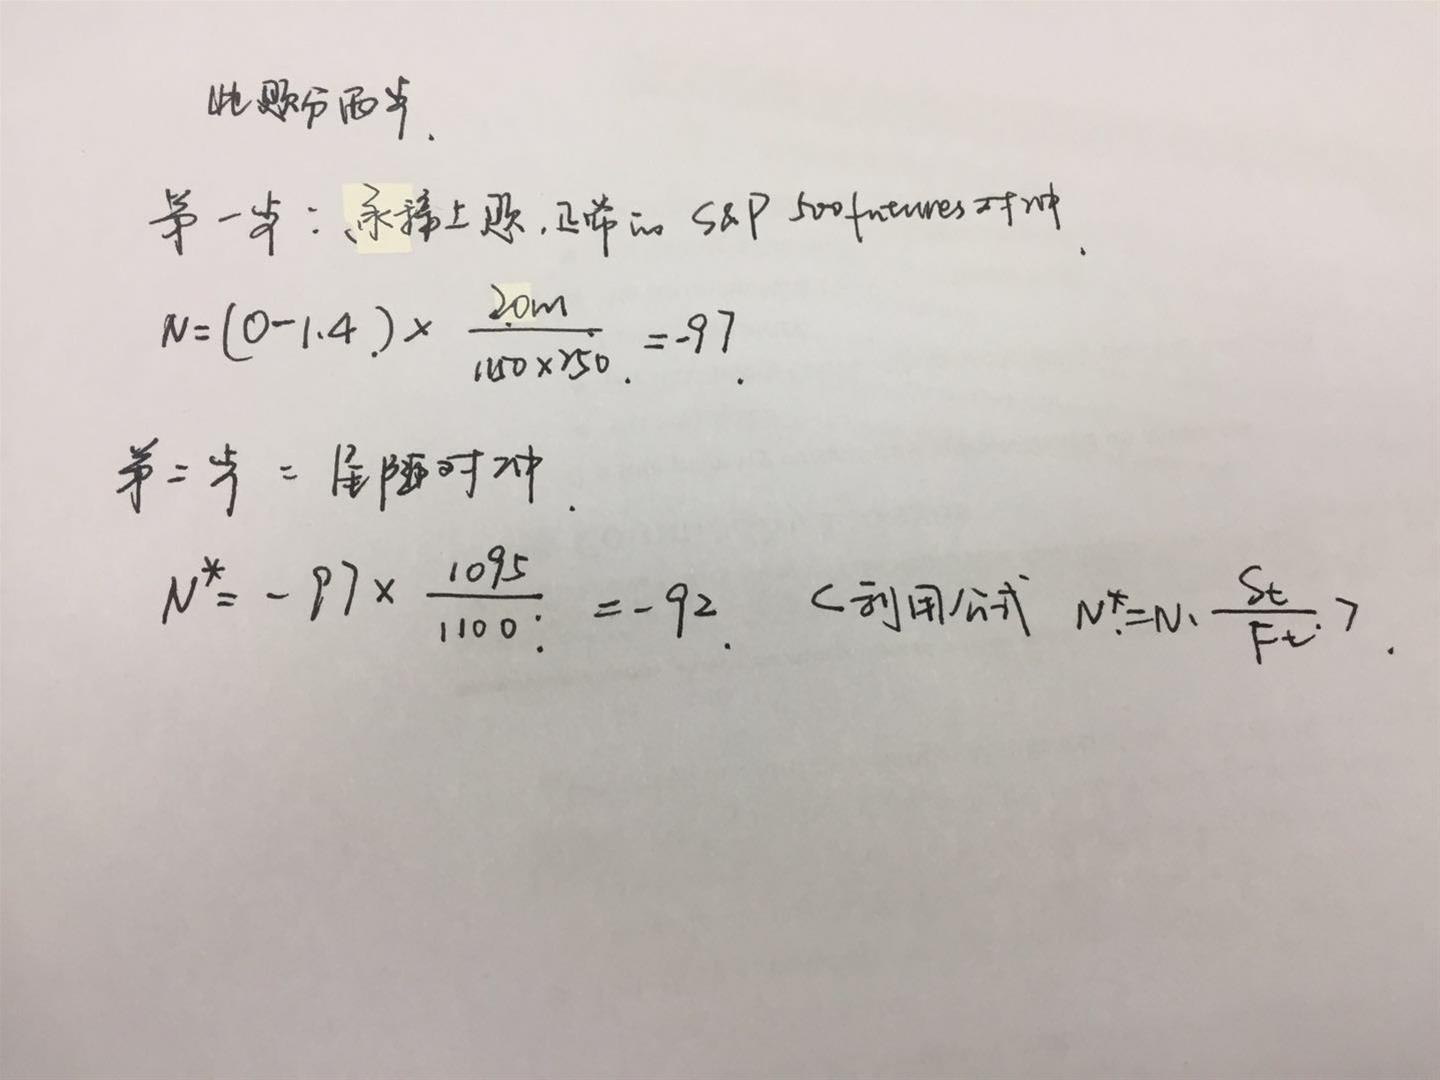 此题分两步.
第一步：承接上题.正常的 S&P 500 futures 对冲.
N=(0-1.4)× 20m / 1150×250 =-97.
第二步= 尾随对冲.
N*=-97× 1095 / 1100 =-92. <利用公式 N*=N· St / Ft >.